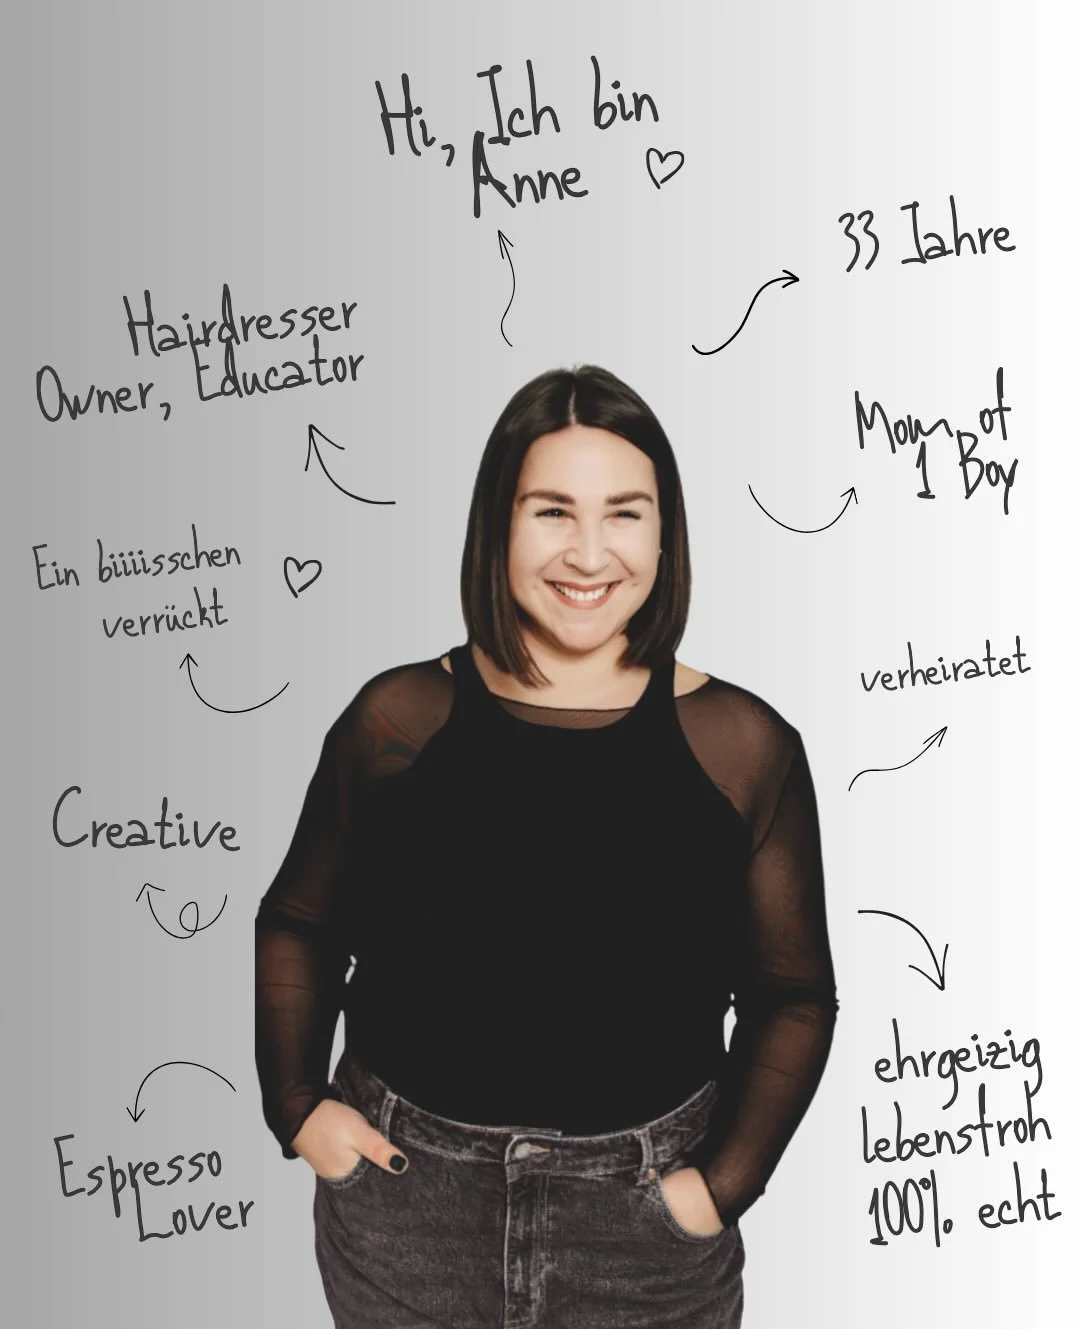 Hi, Ich bin
Anne
33 Jahre
Hairdresser
Owner, Educator
Mom of
1 Boy
Ein biiiisschen
verrückt
verheiratet
Creative
ehrgeizig
lebensfroh
100% echt
Espresso
Lover